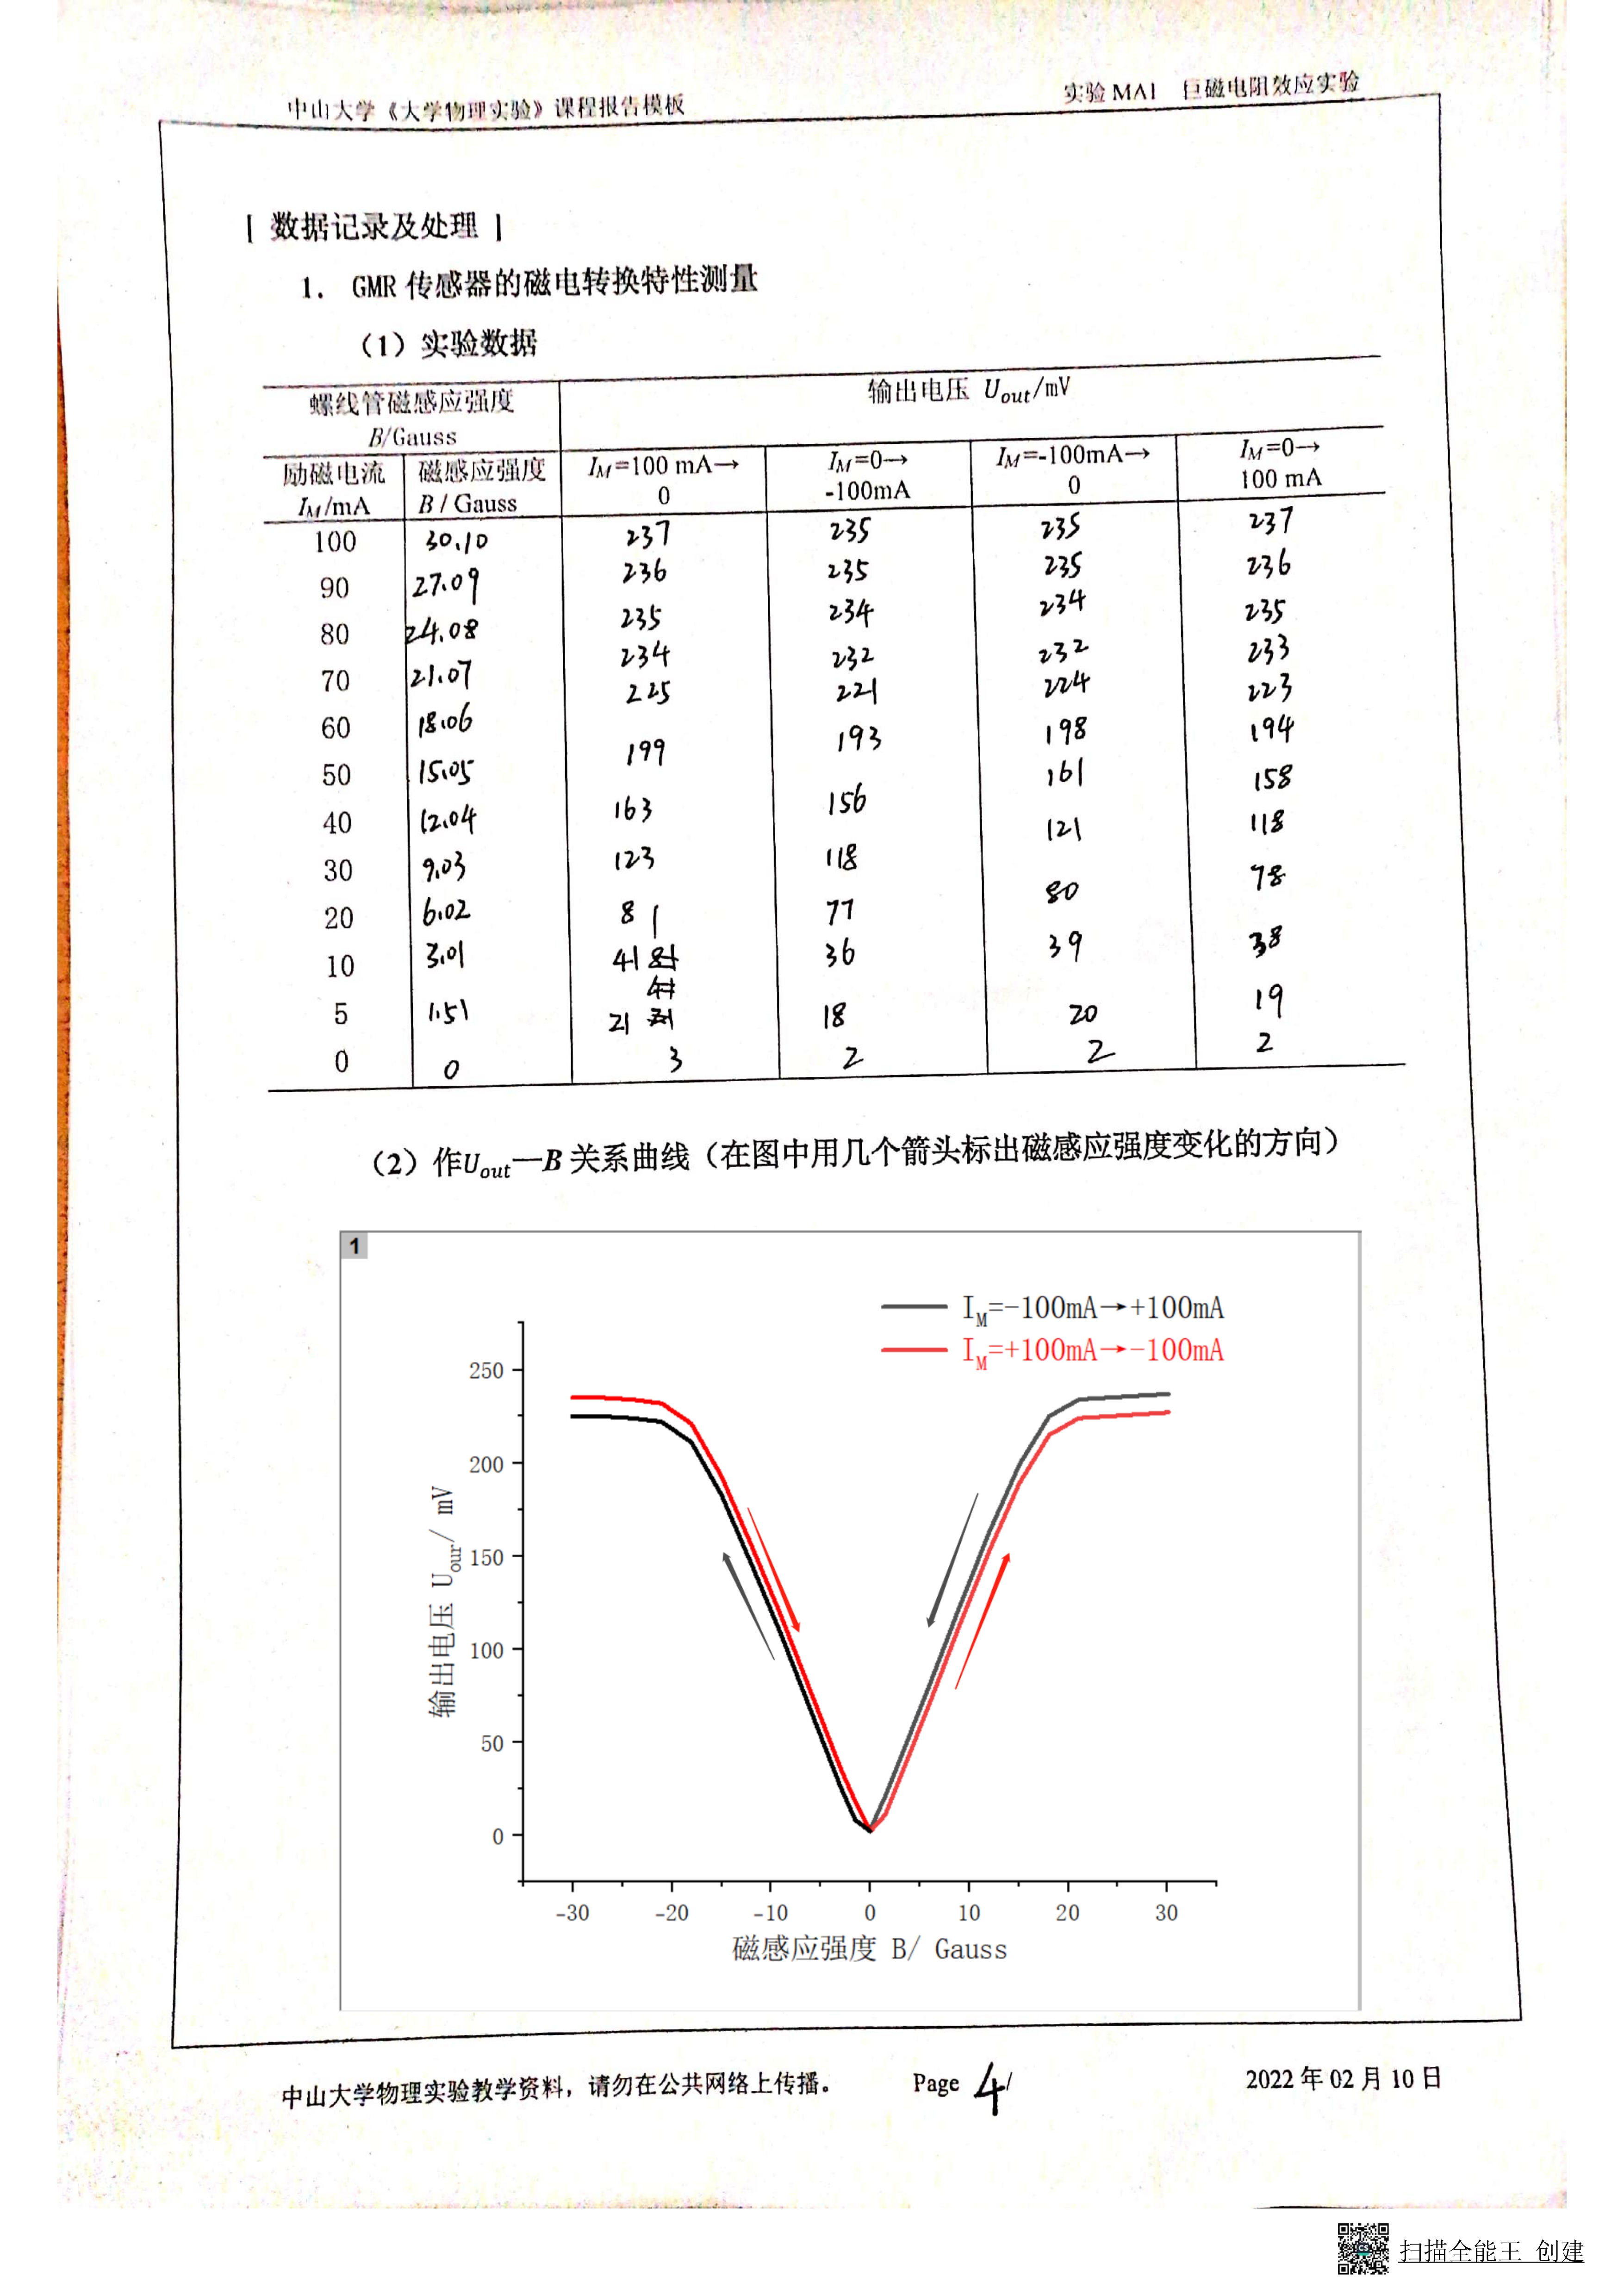 中山大学《大学物理实验》课程报告模板 实验 MA1 巨磁电阻效应实验
[ 数据记录及处理 ]
1. GMR 传感器的磁电转换特性测量
（1）实验数据
螺线管磁感应强度 B/Gauss 输出电压 Uout/mV
励磁电流 IM/mA 磁感应强度 B / Gauss IM=100 mA→0 IM=0→-100mA IM=-100mA→0 IM=0→100 mA
100 30.10 237 235 235 237
90 27.09 236 235 235 236
80 24.08 235 234 234 235
70 21.07 234 232 232 233
60 18.06 225 221 224 223
50 15.05 199 193 198 194
40 12.04 163 156 161 158
30 9.03 123 118 121 118
20 6.02 81 77 80 78
10 3.01 41 36 39 38
5 1.51 21 18 20 19
0 0 3 2 2 2
（2）作Uout—B 关系曲线（在图中用几个箭头标出磁感应强度变化的方向）
1
IM=-100mA→+100mA
IM=+100mA→-100mA
250
200
150
100
50
0
输出电压 Uour/ mV
-30 -20 -10 0 10 20 30
磁感应强度 B/ Gauss
中山大学物理实验教学资料，请勿在公共网络上传播。 Page 4/ 2022 年 02 月 10 日
扫描全能王 创建